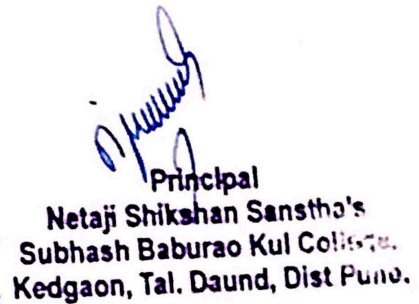 Principal
Netaji Shikshan Sanstha's
Subhash Baburao Kul College.
Kedgaon, Tal. Daund, Dist Pune.